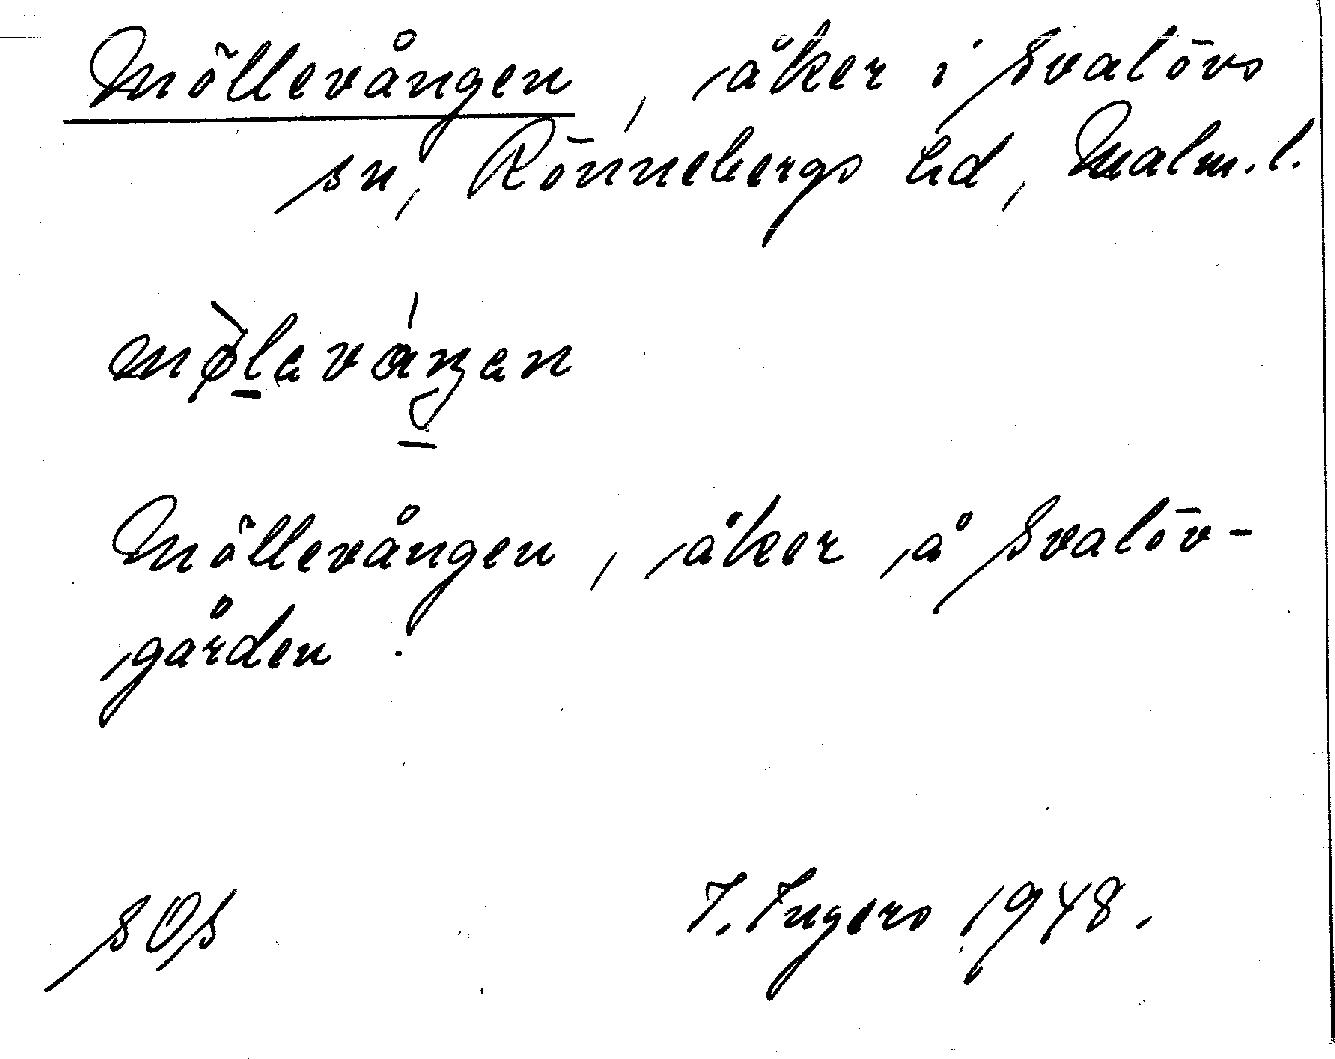 Möllevången, åker i Svalövs
sn, Rönnebergs hd, Malm. l.
mø̀laváŋan
Möllevången, åker å Svalöv-
gården.
SOS I. Ingers 1948.